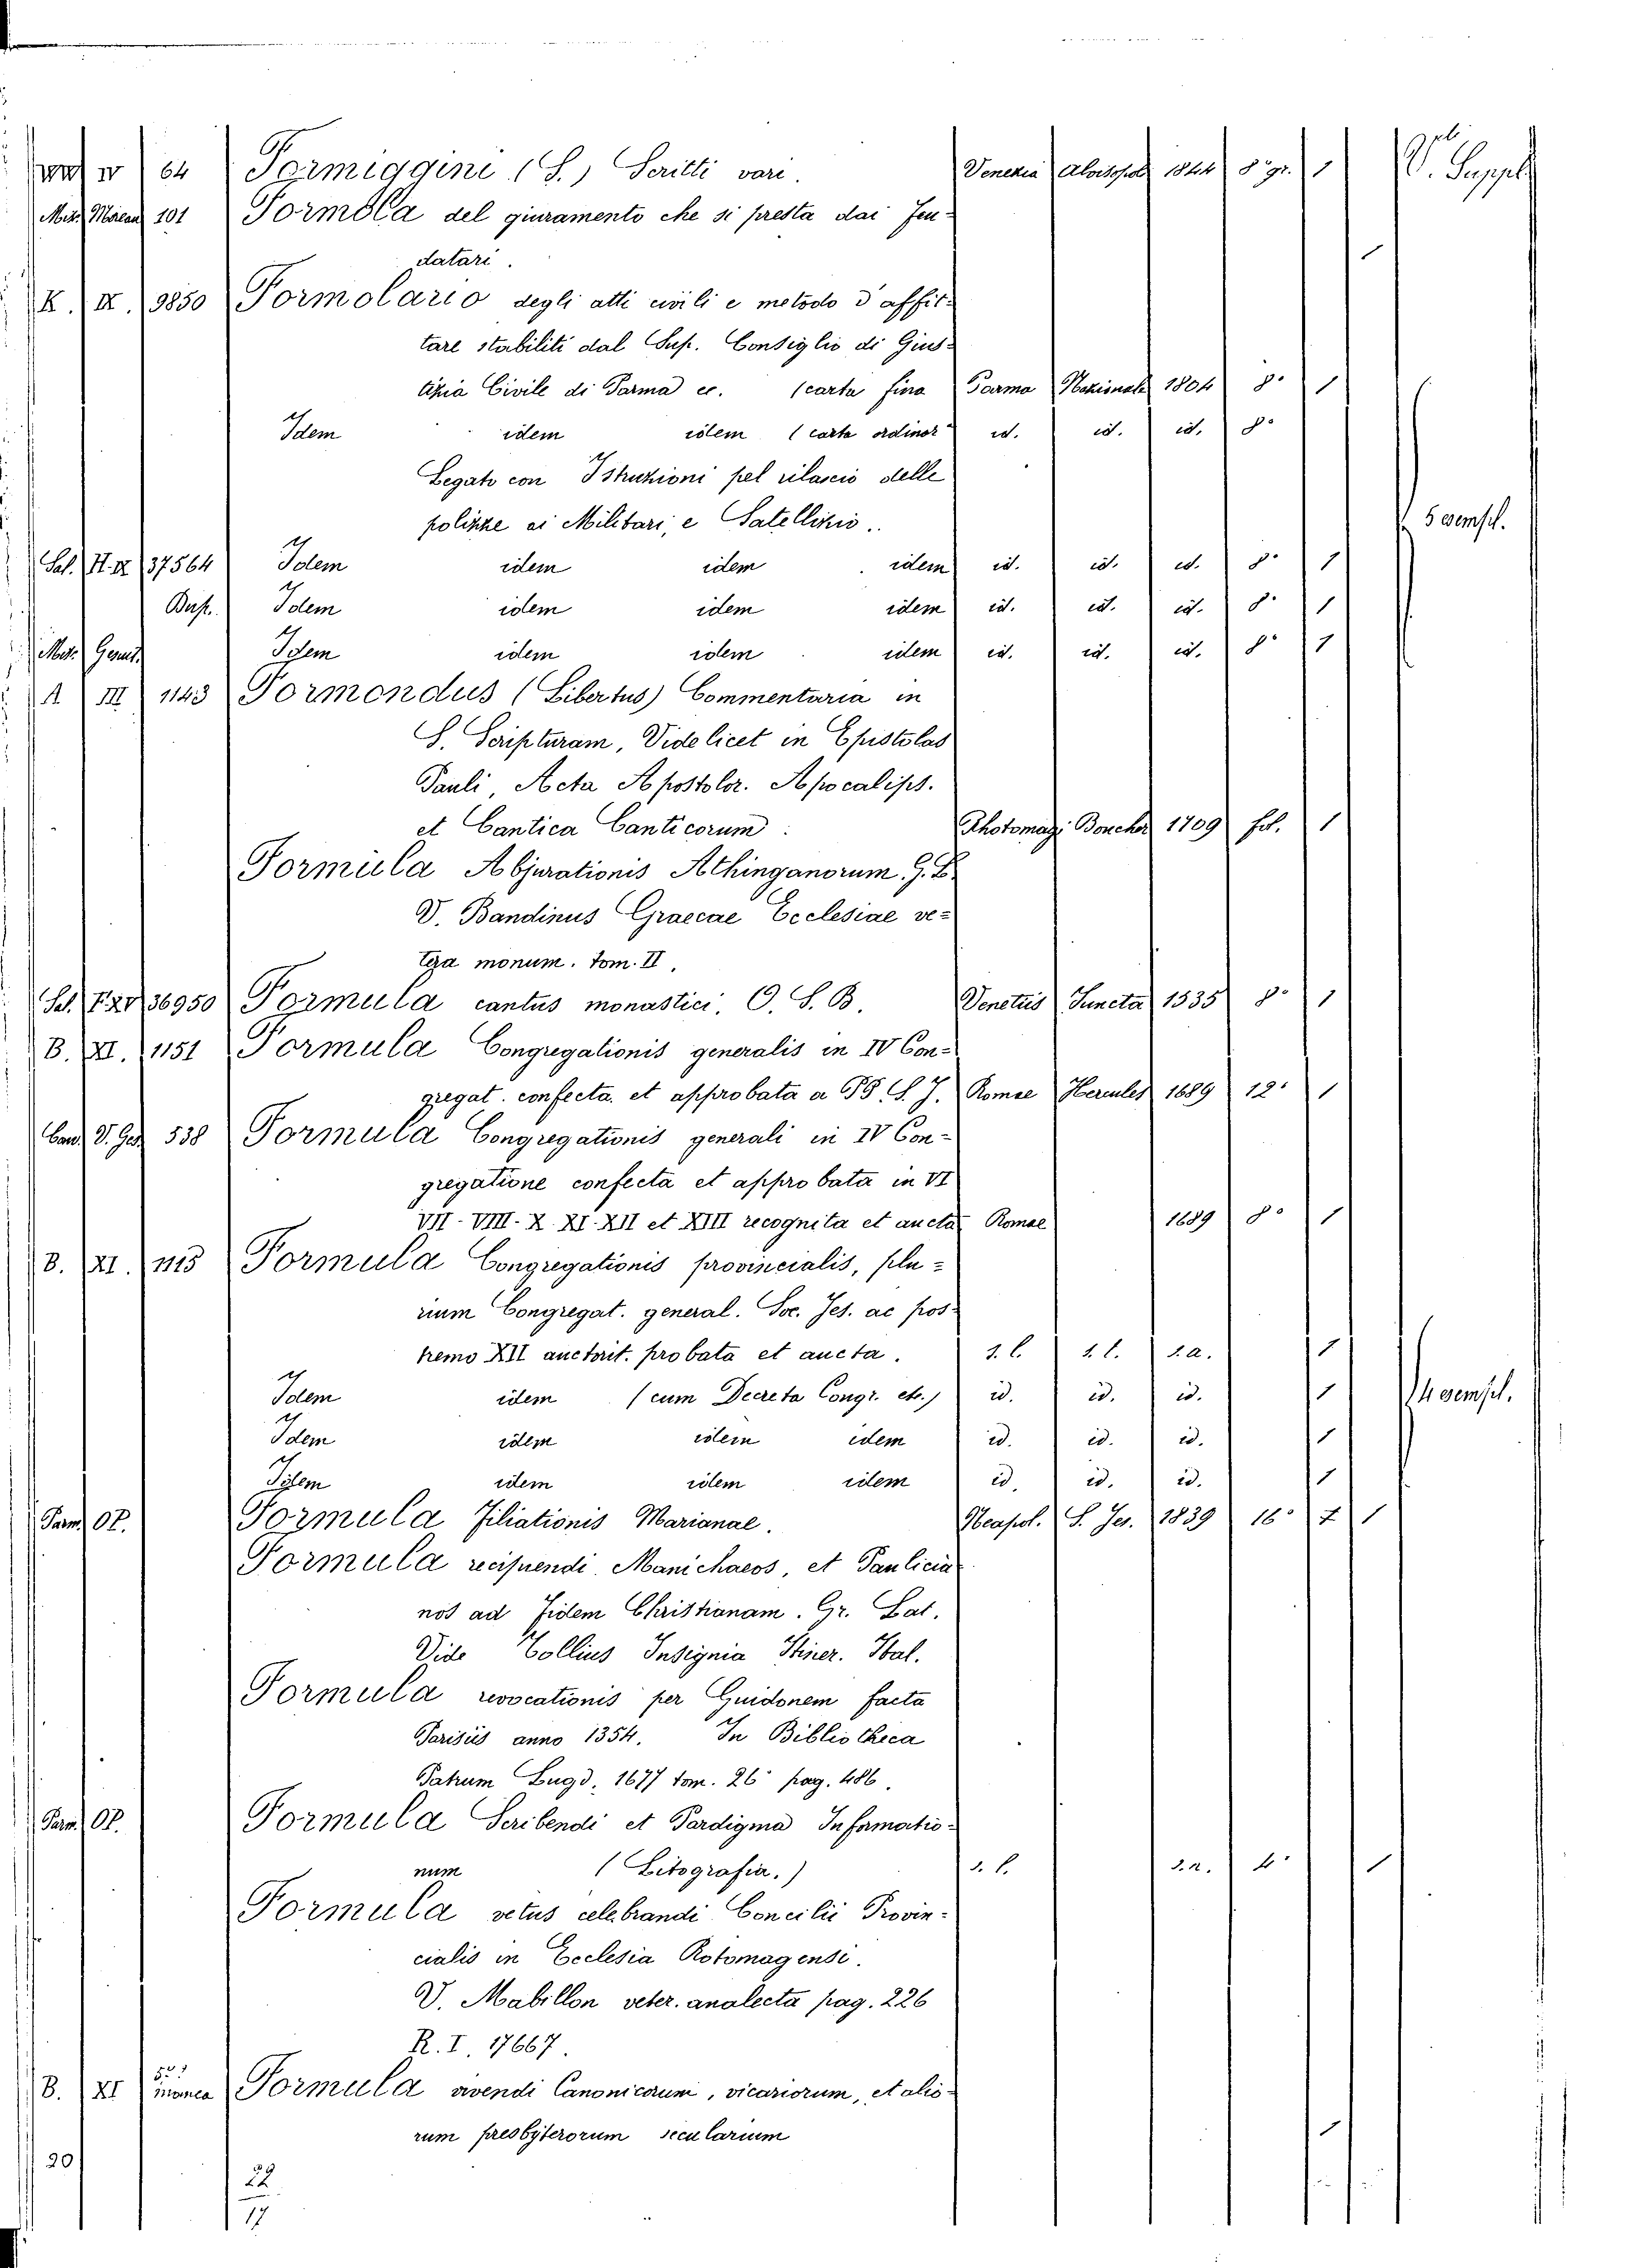 IV 64 Formiggini (S.) Scritti vari. Venezia Alvisopoli 1844 8° gr. 1 V. Suppl.
Misc. 101 Formola del giuramento che si presta dai feu-
datari. 1
K. IX. 9850 Formolario degli atti civili e metodo d'affit-
tare stabiliti dal Sup. Consiglio di Gius-
tizia Civile di Parma ec. (carta fina Parma Nazionale 1804 8° 1
Idem idem idem (carta ordinar.a id. id. id. 8°
Legato con Istruzioni pel rilascio delle
polizze ai Militari, e Satellizio. 5 esempl.
Sal. H. IX 37564 Idem idem idem idem id. id. id. 8° 1
Bup. Idem idem idem idem id. id. id. 8° 1
Mis. Idem idem idem idem id. id. id. 8° 1
A III 1143 Formondus (Libertus) Commentaria in
S. Scripturam, Videlicet in Epistolas
Pauli, Acta Apostolor. Apocalips.
et Cantica Canticorum. Rhotomagi Boucher 1709 fol. 1
Formula Abjurationis Athinganorum. G. L.
V. Bandinus Graecae Ecclesiae ve-
tera monum. tom. II.
Sal. 36950 Formula cantus monastici. O. S. B. Venetiis Juncta 1535 8° 1
B. XI. 1151 Formula Congregationis generalis in IV Con-
gregat. confecta et approbata a PP. S. J. Romae Hercules 1689 12° 1
V. Ges 538 Formula Congregationis generali in IV Con-
gregatione confecta et approbata in VI
VII - VIII - X. XI. XII et XIII recognita et aucta Romae 1689 8° 1
B. XI. 1115 Formula Congregationis provincialis, plu-
rium Congregat. general. Soc. Jes. ac pos-
tremo XII auctorit. probata et aucta. s. l. s. t. s. a. 1
Idem idem (cum Decreta Congr. etc.) id. id. id. 1 4 esempl.
Idem idem idem idem id. id. id. 1
Idem idem idem idem id. id. id. 1
Parm. Op. Formula Filiationis Marianae. Neapol. S. Jes. 1839 16° 7 1
Formula recipiendi Manichaeos, et Paulicia-
nos ad Fidem Christianam. Gr. Lat.
Vide Tollius Insignia Itiner. Ital.
Formula revocationis per Guidonem facta
Parisiis anno 1354. In Bibliotheca
Patrum Lugd. 1677 tom. 26° pag. 486.
Parm. Op. Formula Scribendi et Pardigma Informatio-
num (Litografia.) s. l. s. a. 4° 1
Formula vetus celebrandi Concilii Provin-
cialis in Ecclesia Rotomagensi.
V. Mabillon veter. analecta pag. 226
R. I. 17667.
B. XI manca Formula vivendi Canonicorum, vicariorum, et alio-
rum presbyterorum secularium 1
20
22
17